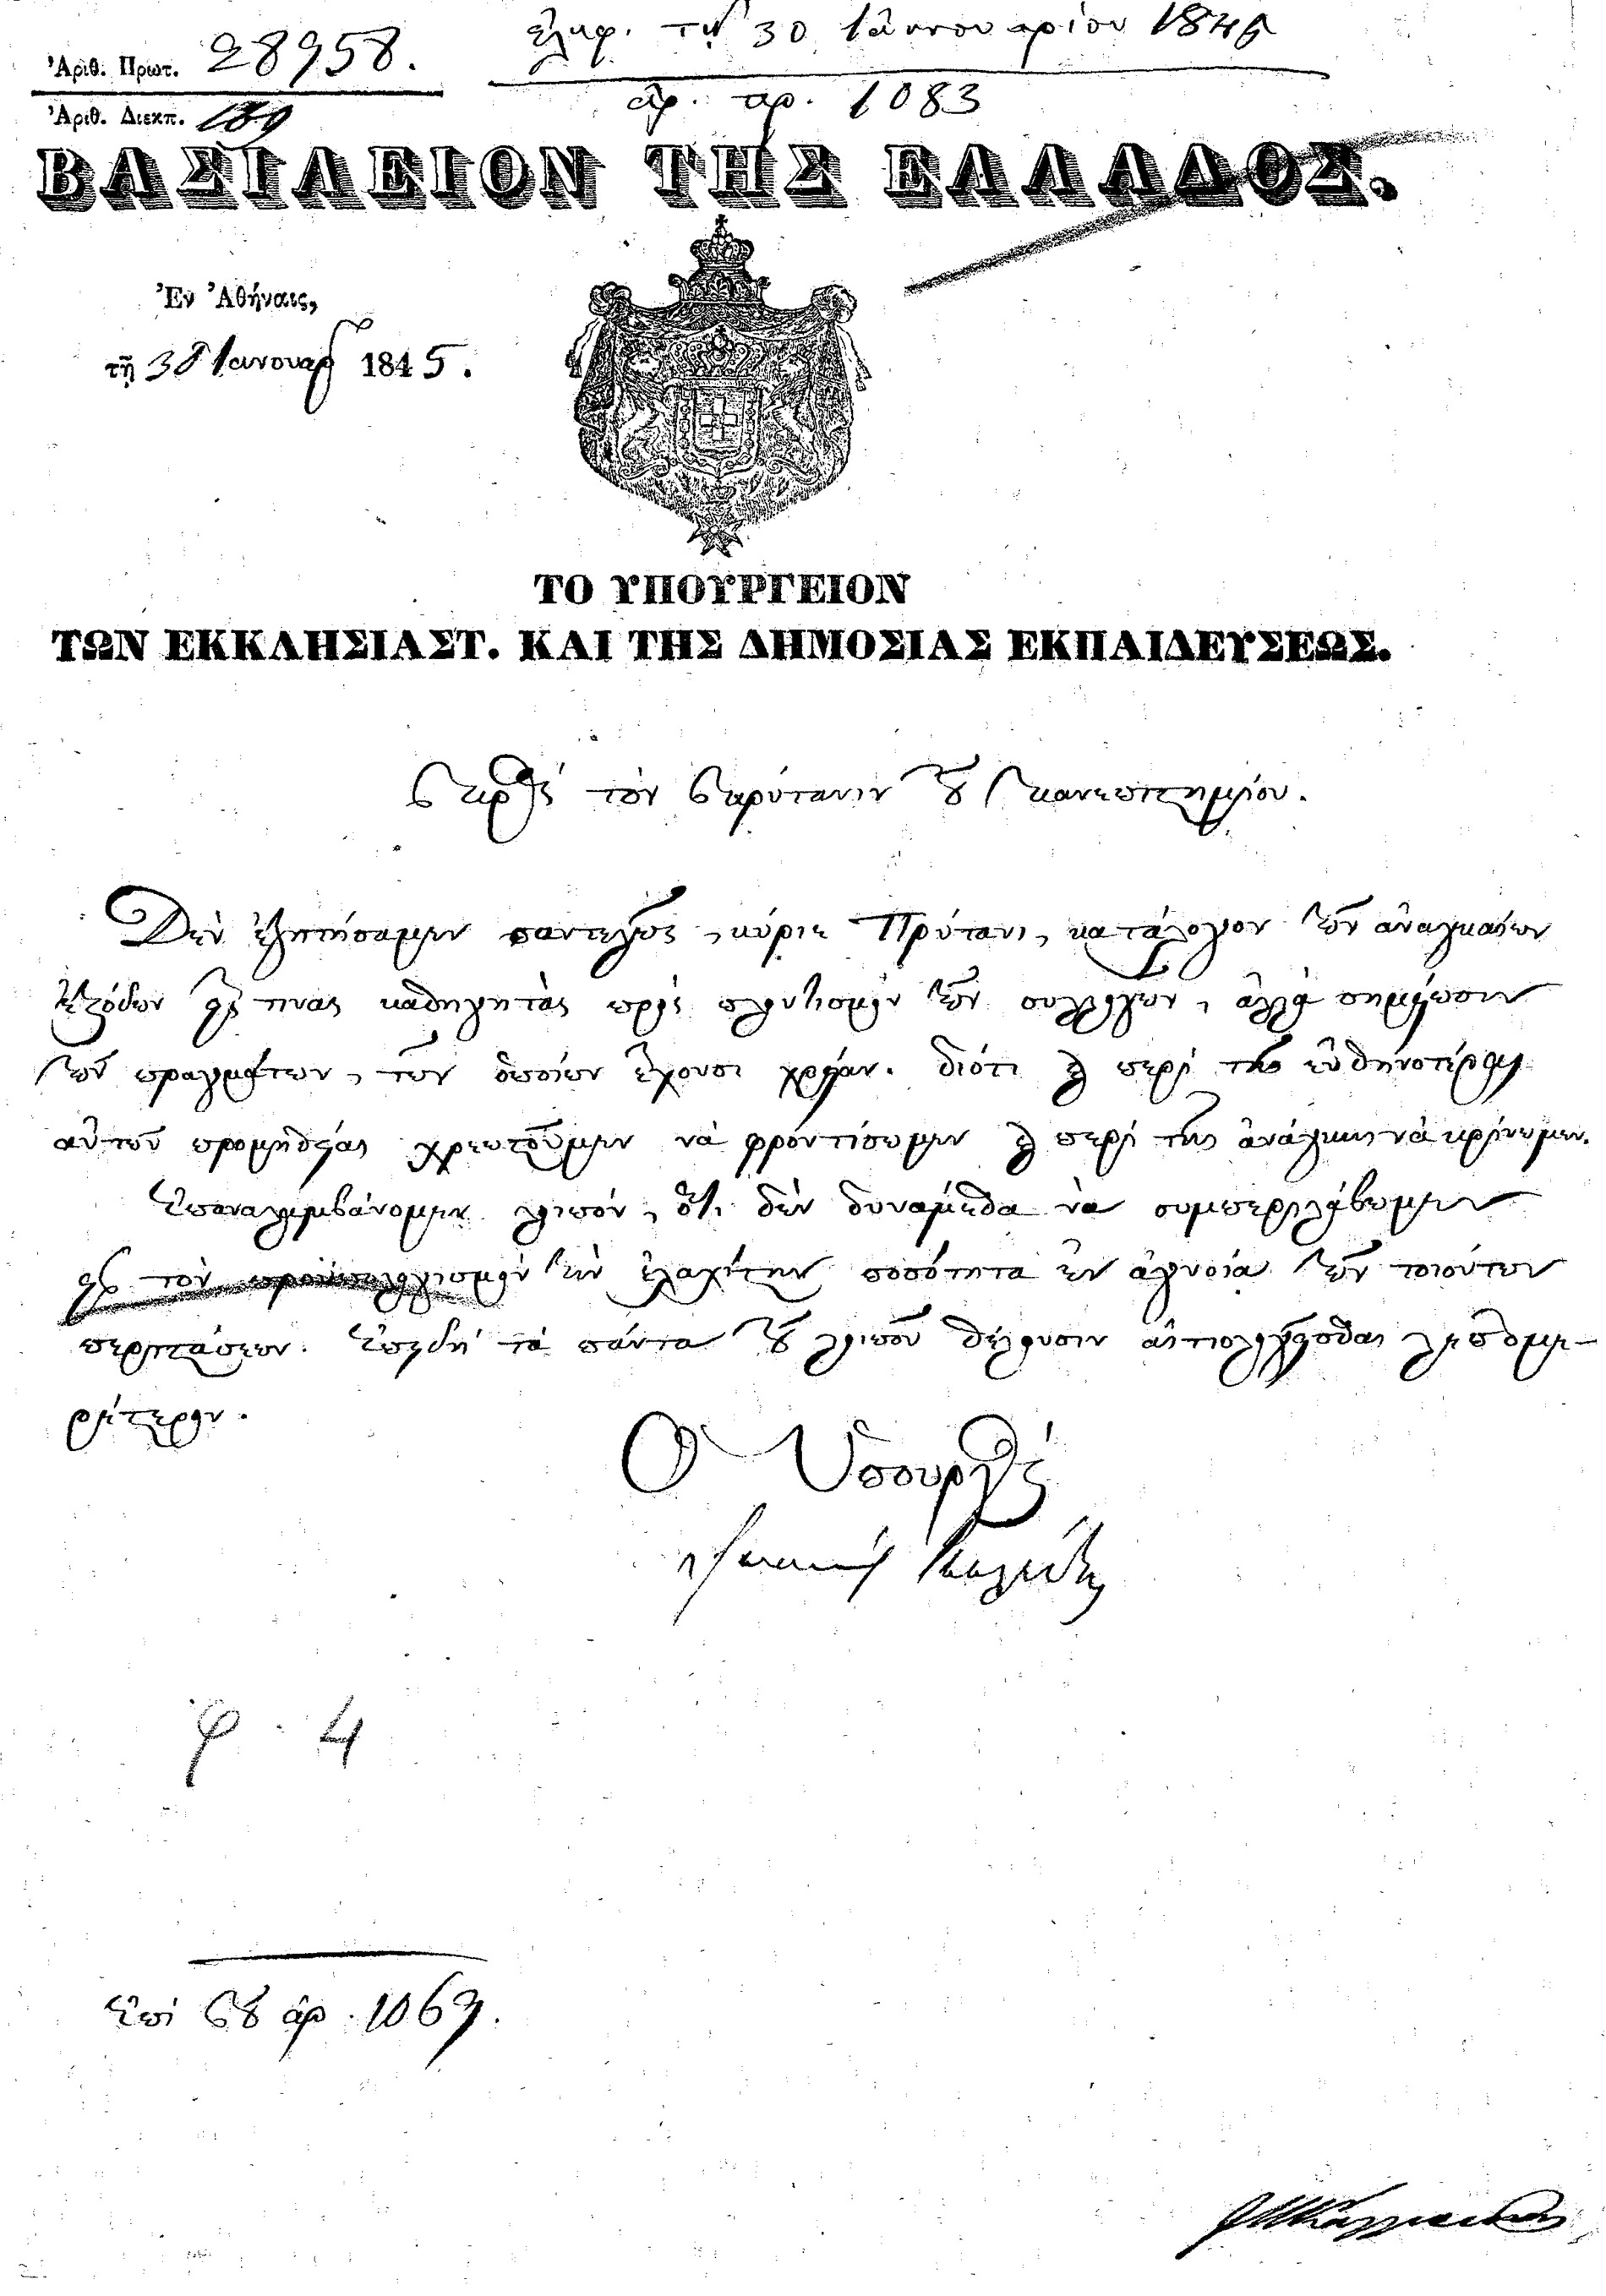 Ἀριθ. Πρωτ. 28958.
ἐλήφ. τῇ 30 Ἰαννουαρίου 1845
Ἀριθ. Διεκπ. 189
ἀρ. πρ. 1083
ΒΑΣΙΛΕΙΟΝ ΤΗΣ ΕΛΛΑΔΟΣ.
Ἐν Ἀθήναις,
τῇ 30 Ἰανουαρ 1845.
ΤΟ ΥΠΟΥΡΓΕΙΟΝ
ΤΩΝ ΕΚΚΛΗΣΙΑΣΤ. ΚΑΙ ΤΗΣ ΔΗΜΟΣΙΑΣ ΕΚΠΑΙΔΕΥΣΕΩΣ.
Πρὸς τὸν Πρύτανιν τοῦ Πανεπιστημίου.
Δὲν ἐζητήσαμεν παντελῶς, κύριε Πρύτανι, κατάλογον τῶν ἀναγκαίων
ἐξόδων εἴς τινας καθηγητὰς πρὸς πλουτισμὸν τῶν συλλόγων, ἀλλὰ σημείωσιν
τῶν πραγμάτων, τῶν ὁποίων ἔχουσι χρείαν. διότι καὶ περὶ τῆς εὐθηνοτέρας
αὐτῶν προμηθείας χρεωστοῦμεν νὰ φροντίσωμεν καὶ περὶ τῆς ἀνάγκης νὰ κρίνωμεν.
Ἐπαναλαμβάνομεν λοιπὸν, ὅτι δὲν δυνάμεθα νὰ συμπεριλάβωμεν
εἰς τὸν προϋπολογισμὸν τὴν ἐλαχίστην ποσότητα ἐν ἀγνοίᾳ τῶν τοιούτων
περιστάσεων. Ἐπειδὴ τὰ πάντα τοῦ λοιποῦ θέλουσιν αἰτιολογεῖσθαι λεπτομε-
ρέστερον.
Ὁ Ὑπουργὸς
Κωλέττης
φ. 4
Ἐπὶ τοῦ ἀρ. 1069.